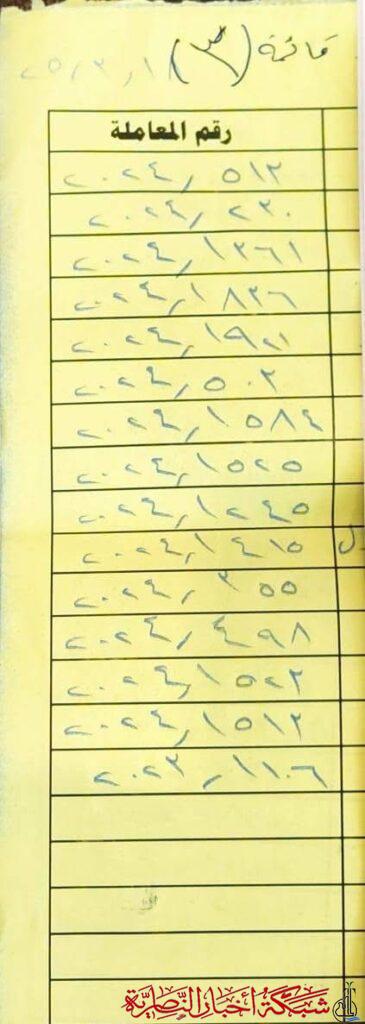 قائمة (٣) ٢٥/٣/١٨
رقم المعاملة
٥١٣ / ٢٠٢٤
٢٣٠ / ٢٠٢٤
١٣٦١ / ٢٠٢٤
١٨٣٦ / ٢٠٢٤
١٩٢١ / ٢٠٢٤
٥٠٣ / ٢٠٢٤
١٥٨٤ / ٢٠٢٤
١٥٢٥ / ٢٠٢٤
١٢٤٥ / ٢٠٢٤
١٤١٥ / ٢٠٢٤
٣٥٥ / ٢٠٢٤
٤٩٨ / ٢٠٢٤
١٥٢٣ / ٢٠٢٤
١٥١٣ / ٢٠٢٤
١١٠٦ / ٢٠٢٣
شبكة أخبار الناصرية